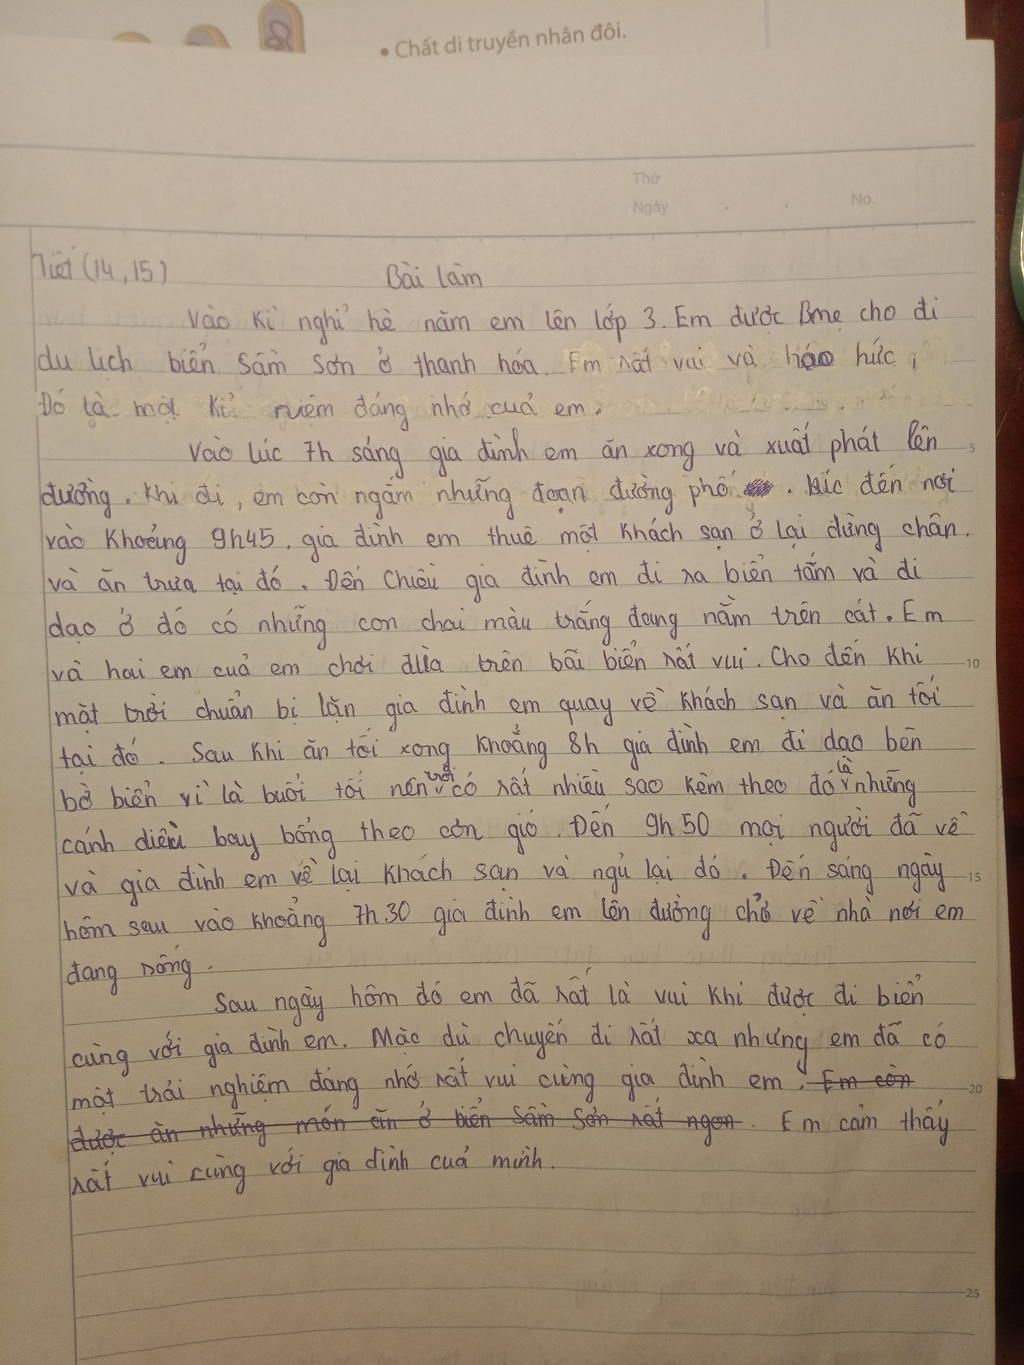 • Chất di truyền nhân đôi.
Thứ
Ngày . . No.
Tiết (14, 15)
Bài làm
Vào kì nghỉ hè năm em lên lớp 3. Em được Bmẹ cho đi
du lịch biển Sầm Sơn ở thanh hóa. Em rất vui và háo hức,
Đó là một kỉ niệm đáng nhớ của em.
Vào lúc 7h sáng gia đình em ăn xong và xuất phát lên
5
đường. Khi đi, em còn ngắm những đoạn đường phố. Lúc đến nơi
vào khoảng 9h45, gia đình em thuê một khách sạn ở lại dừng chân.
và ăn trưa tại đó. Đến chiều gia đình em đi ra biển tắm và đi
dạo ở đó có những con chai màu trắng đang nằm trên cát. Em
và hai em của em chơi đùa trên bãi biển rất vui. Cho đến khi
10
mặt trời chuẩn bị lặn gia đình em quay về khách sạn và ăn tối
tại đó. Sau khi ăn tối xong khoảng 8h gia đình em đi dạo bên
bờ biển vì là buổi tối nên trời có rất nhiều sao kèm theo đó là những
cánh diều bay bổng theo cơn gió. Đến 9h50 mọi người đã về
và gia đình em về lại khách sạn và ngủ lại đó. Đến sáng ngày
15
hôm sau vào khoảng 7h30 gia đình em lên đường chở về nhà nơi em
đang sống.
Sau ngày hôm đó em đã rất là vui khi được đi biển
cùng với gia đình em. Mặc dù chuyến đi rất xa nhưng em đã có
một trải nghiệm đáng nhớ rất vui cùng gia đình em. Em còn
20
được ăn những món ăn ở biển Sầm Sơn rất ngon. Em cảm thấy
rất vui cùng với gia đình của mình.
25